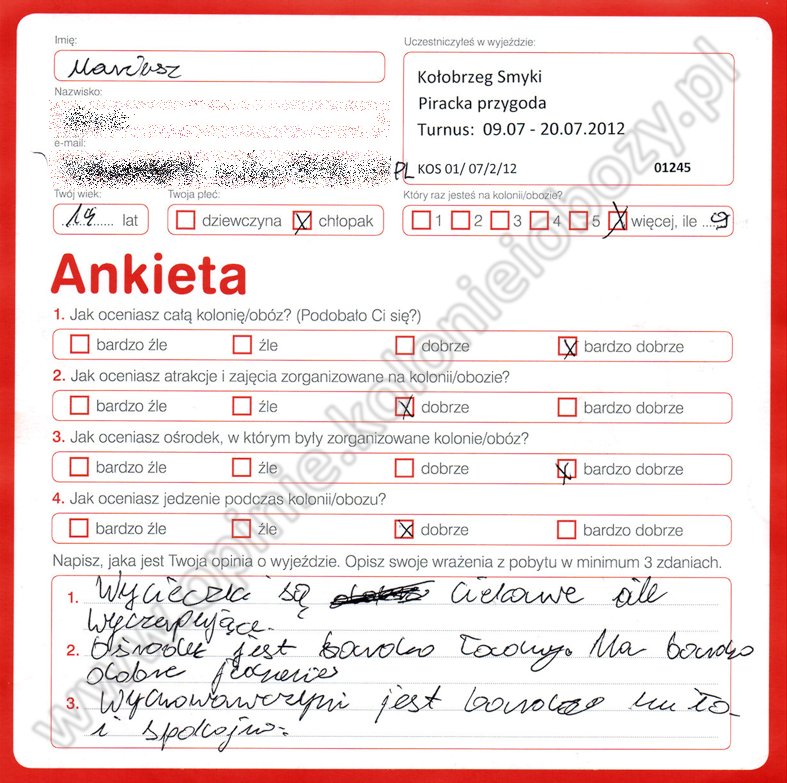 Imię:
Mariusz
Uczestniczyłeś w wyjeździe:
Kołobrzeg Smyki
Piracka przygoda
Turnus: 09.07 - 20.07.2012
KOS 01/ 07/2/12 01245
Nazwisko:
e-mail:
PL
Twój wiek: Twoja płeć: Który raz jesteś na kolonii/obozie?
14 lat dziewczyna X chłopak 1 2 3 4 5 X więcej, ile 9
Ankieta
1. Jak oceniasz całą kolonię/obóz? (Podobało Ci się?)
bardzo źle źle dobrze X bardzo dobrze
2. Jak oceniasz atrakcje i zajęcia zorganizowane na kolonii/obozie?
bardzo źle źle X dobrze bardzo dobrze
3. Jak oceniasz ośrodek, w którym były zorganizowane kolonie/obóz?
bardzo źle źle dobrze X bardzo dobrze
4. Jak oceniasz jedzenie podczas kolonii/obozu?
bardzo źle źle X dobrze bardzo dobrze
Napisz, jaka jest Twoja opinia o wyjeździe. Opisz swoje wrażenia z pobytu w minimum 3 zdaniach.
1. Wycieczki są ciekawe ale
wyczerpujące.
2. Ośrodek jest bardzo ładny. Ma bardzo
dobre jedzenie
3. Wychowawczyni jest bardzo miła
i spokojna.
www.opinie.kolonieiobozy.pl